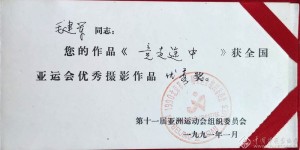 毛建军 同志:
您的作品《竞走途中》获全国
亚运会优秀摄影作品优秀奖。
第十一届亚洲运动会组织委员会
一九九一年一月